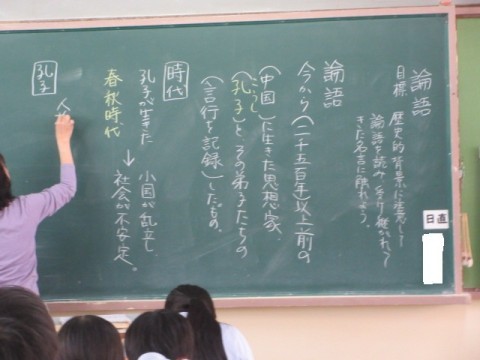 論語
目標 歴史的背景に注意して
論語を読み、受け継がれて
きた名言に触れよう。
論語
今から(二千五百年)以上前の
(中国)に生きた思想家、
(孔子)とその弟子たちの
こうし
(言行を記録)したもの。
時代
孔子が生きた → 小国が乱立し、
春秋時代 社会が不安定。
孔子
日直